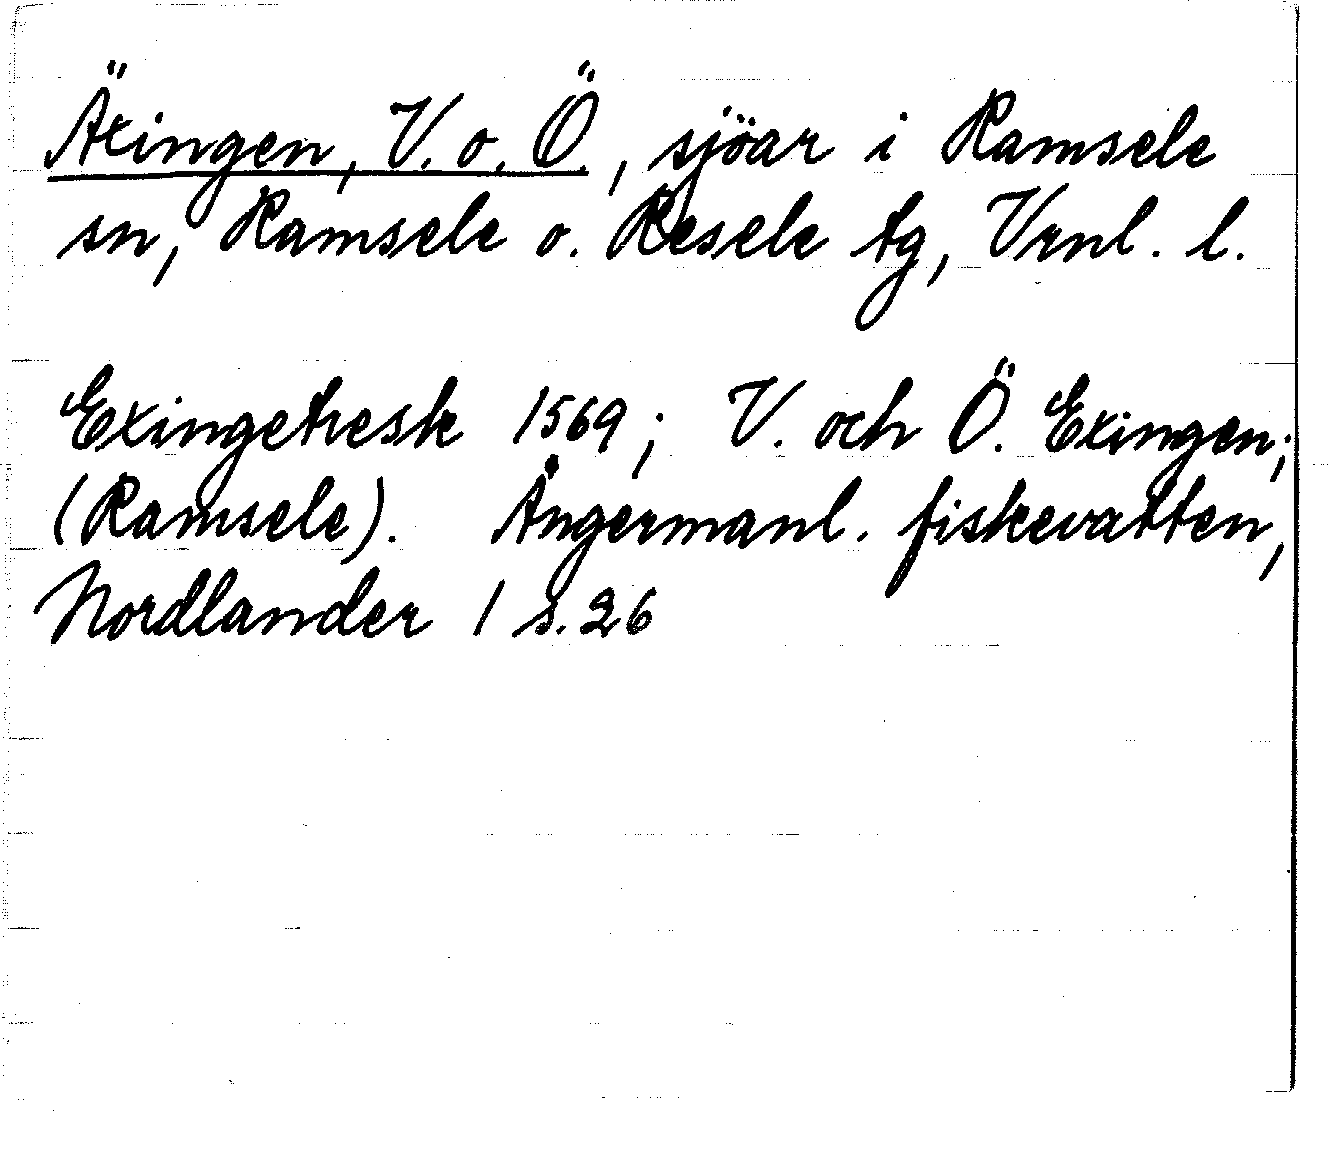 Äxingen, V. o. Ö., sjöar i Ramsele
sn, Ramsele o. Resele tg, Vrnl. l.
Exingetresk 1569; V. och Ö. Exingen;
(Ramsele). Ångermanl. fiskevatten,
Nordlander 1 s. 26